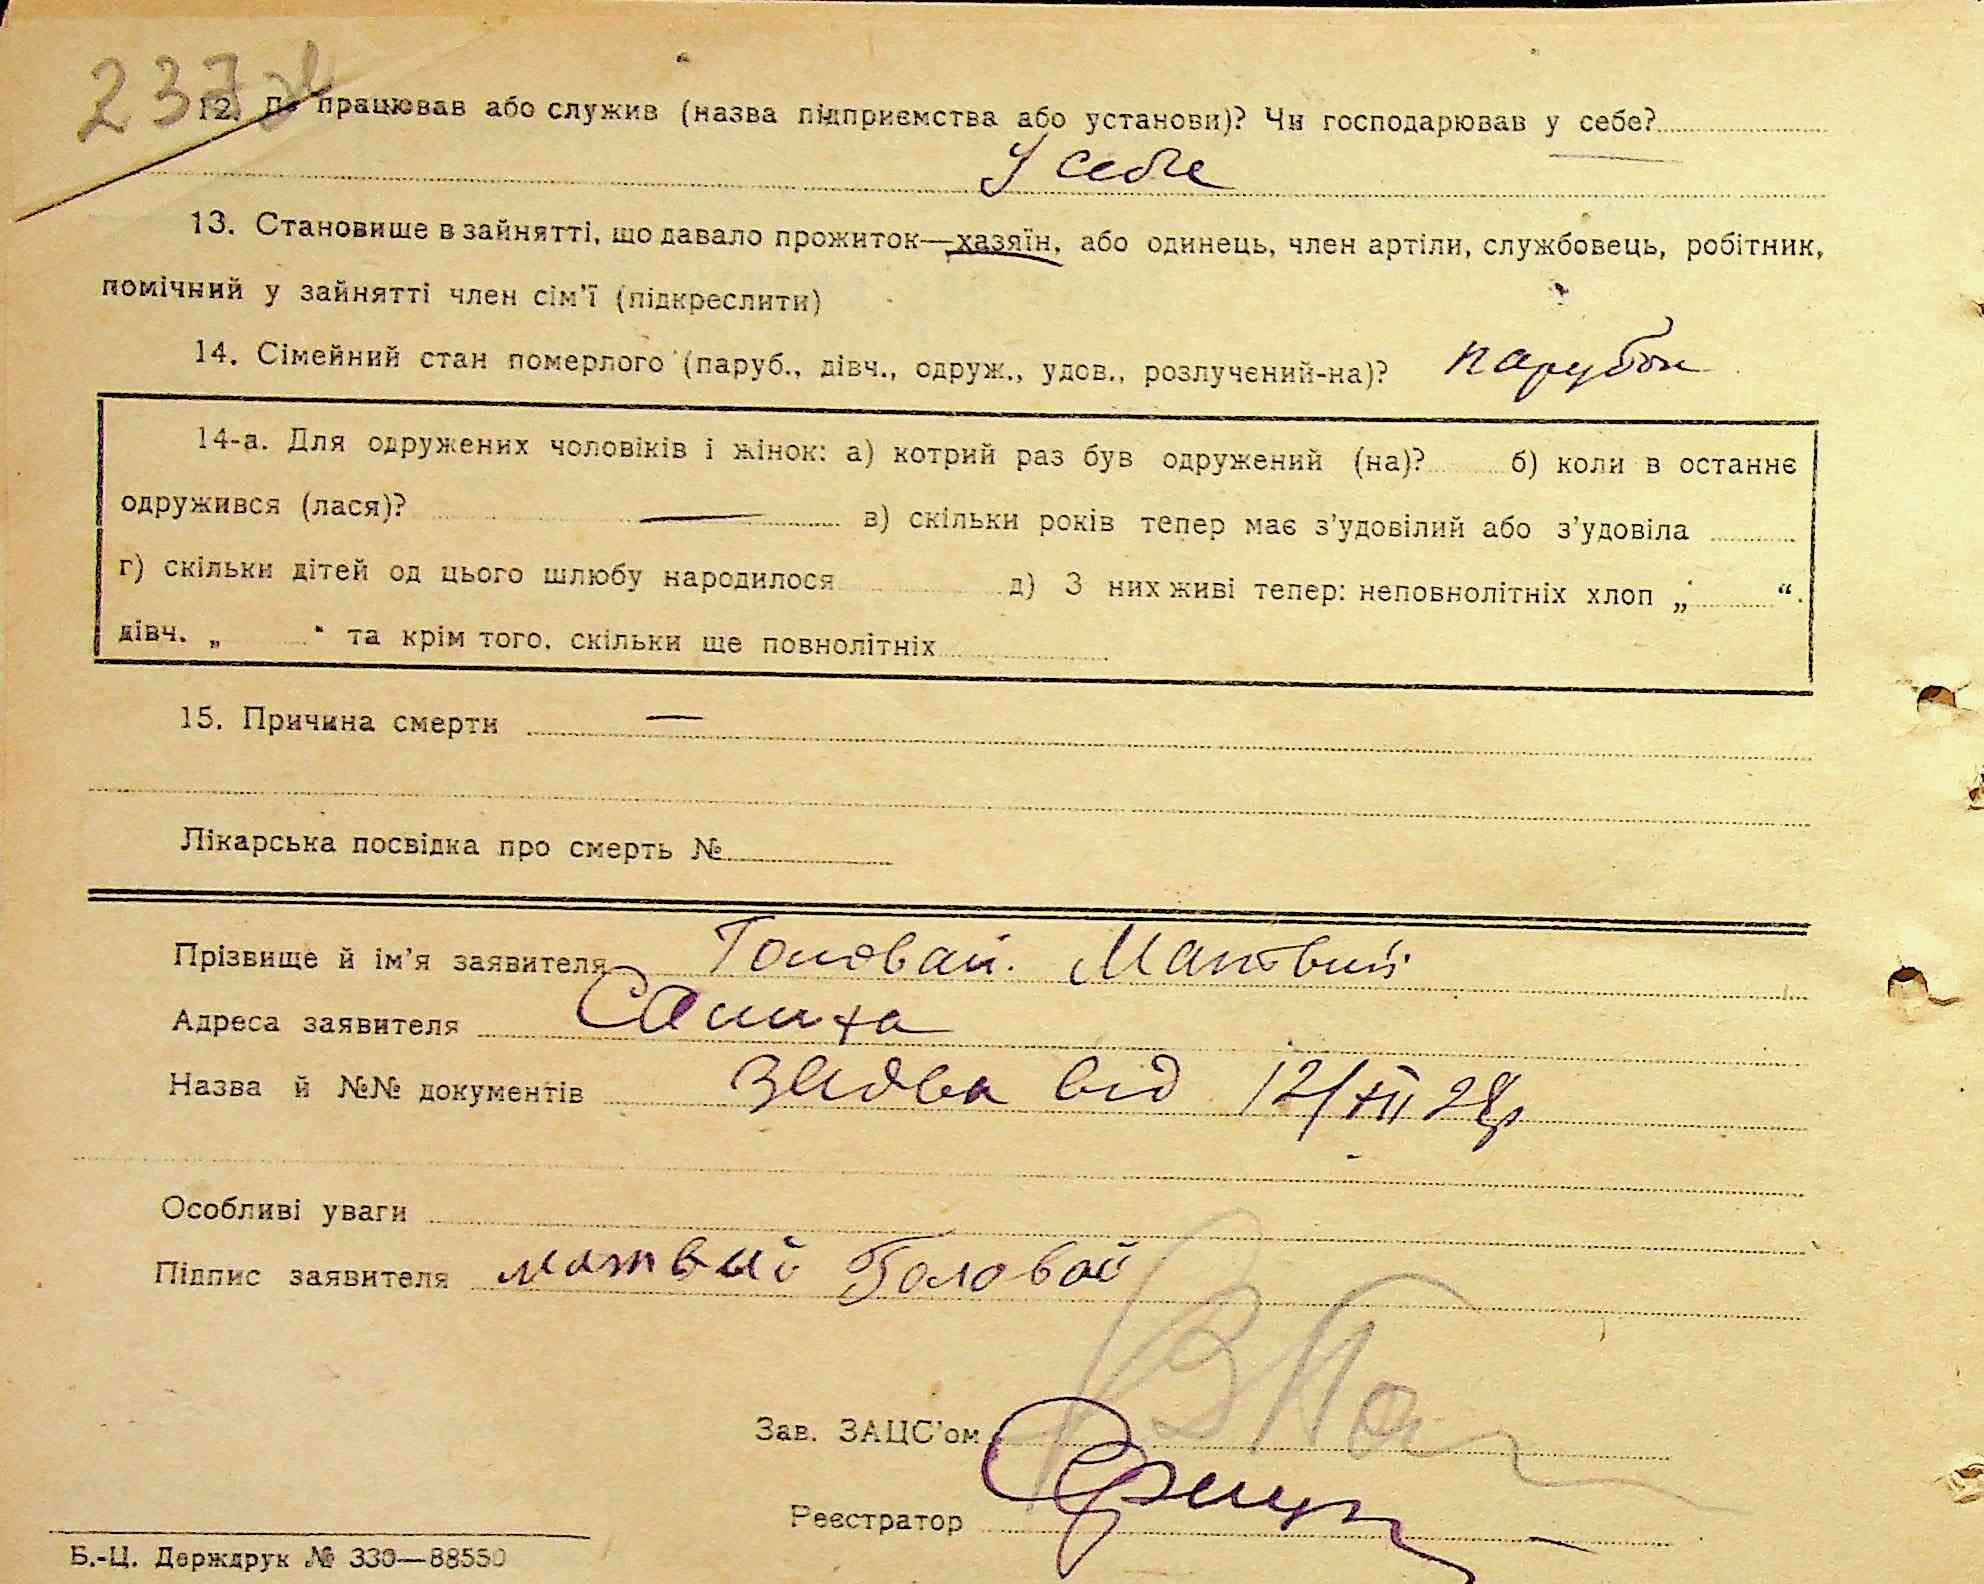 237
12. Де працював або служив (назва підприємства або установи)? Чи господарював у себе?
У себе
13. Становище в зайнятті, що давало прожиток—хазяїн, або одинець, член артіли, службовець, робітник,
помічний у зайнятті член сім'ї (підкреслити)
14. Сімейний стан померлого (паруб., дівч., одруж., удов., розлучений-на)? парубок
14-а. Для одружених чоловіків і жінок: а) котрий раз був одружений (на)? б) коли в останнє
одружився (лася)? — в) скільки років тепер має з'удовілий або з'удовіла
г) скільки дітей од цього шлюбу народилося д) З них живі тепер: неповнолітніх хлоп „ “.
дівч. „ “ та крім того, скільки ще повнолітніх
15. Причина смерти —
Лікарська посвідка про смерть №
Прізвище й ім'я заявителя Головай. Матвий
Адреса заявителя
Назва й №№ документів заява від 12/XII 28р
Особливі уваги
Підпис заявителя матвий Головай
Зав. ЗАЦС'ом
Реєстратор
Б.-Ц. Держдрук № 330—88550